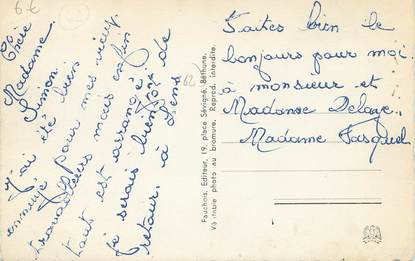 6€
Chère
Madame
Simon
J'ai été bien
ennuyé pour mes vieux
travailleurs mais enfin
tout est arrangé
je serais bientôt de
retour à Lens
62
Fauchois, Editeur, 19, place Sévigné, Béthune.
Véritable photo au bromure. Reprod. interdite.
Faites bien le
bonjours pour moi
à monsieur et
Madame Delaye.
Madame Fasquel